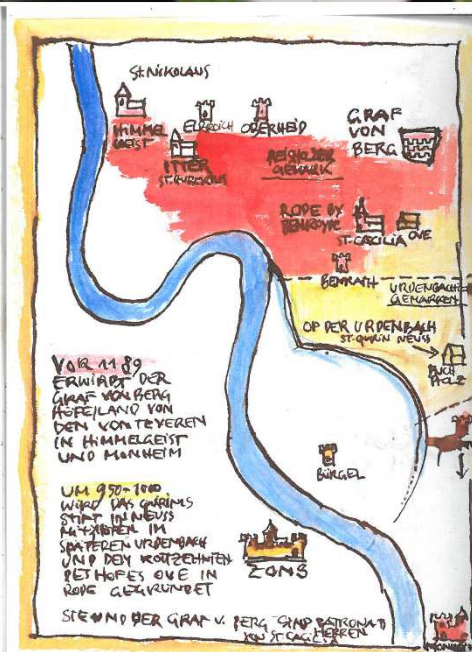 St NIKOLAUS
HIMMEL
GEIST
ELBROICH OBERHEID
ITTER
ST. HUBERTUS
GRAF
VON
BERG
REISHOLZER
GEMARK
RODE BY
BENRODE
ST. CÄCILIA
OVE
BENRATH
URDENBACH
GEMARKEN
OP DER URDENBACH
ST. QUIRIN NEUSS
BUCH
HOLZ
VOR 1189
ERWIRBT DER
GRAF VON BERG
HÖFE/LAND VON
DEN VON TEVEREN
IN HIMMELGEIST
UND MONHEIM
BÜRGEL
UM 950-1000
WIRD DAS QUIRINS
STIFT IN NEUSS
MIT HÖFEN IM
SPÄTEREN URDENBACH
UND DEM ROTTZEHNTEN
DES HOFES OVE IN
RODE GEGRÜNDET
ZONS
SIE UND DER GRAF V. BERG SIND PATRONAT
HERREN
VON ST CÄCILIA